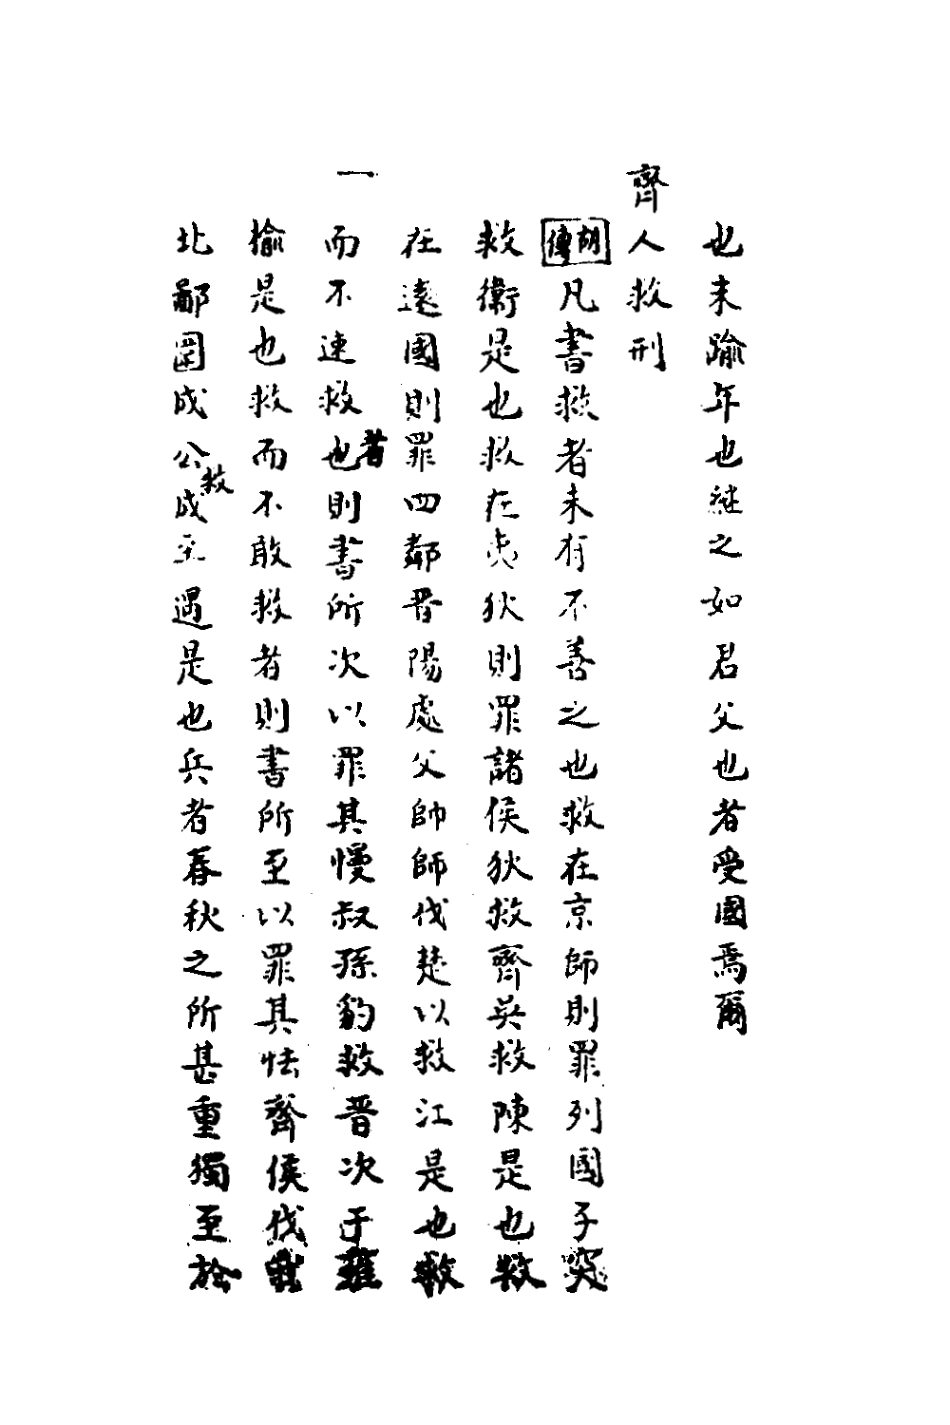 也未踰年也継之如君父也者受國焉爾
齊人救刑
胡傳 凡書救者未有不善之也救在京師則罪列國子突
救衛是也救在夷狄則罪諸侯狄救齊吳救陳是也救
在遠國則罪四鄰晉陽處父帥師伐楚以救江是也救
而不速救也者則書所次以罪其慢叔孫豹救晉次于雍
榆是也救而不敢救者則書所至以罪其怯齊侯伐我
北鄙圍成公救成至遇是也兵者春秋之所甚重獨至於
一